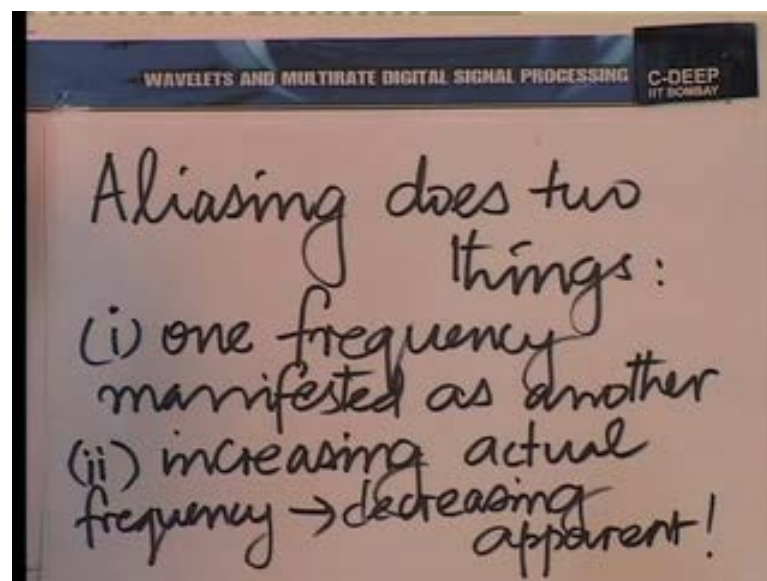 WAVELETS AND MULTIRATE DIGITAL SIGNAL PROCESSING
C-DEEP
IIT BOMBAY
Aliasing does two
things:
(i) one frequency
manifested as another
(ii) increasing actual
frequency → decreasing
apparent!